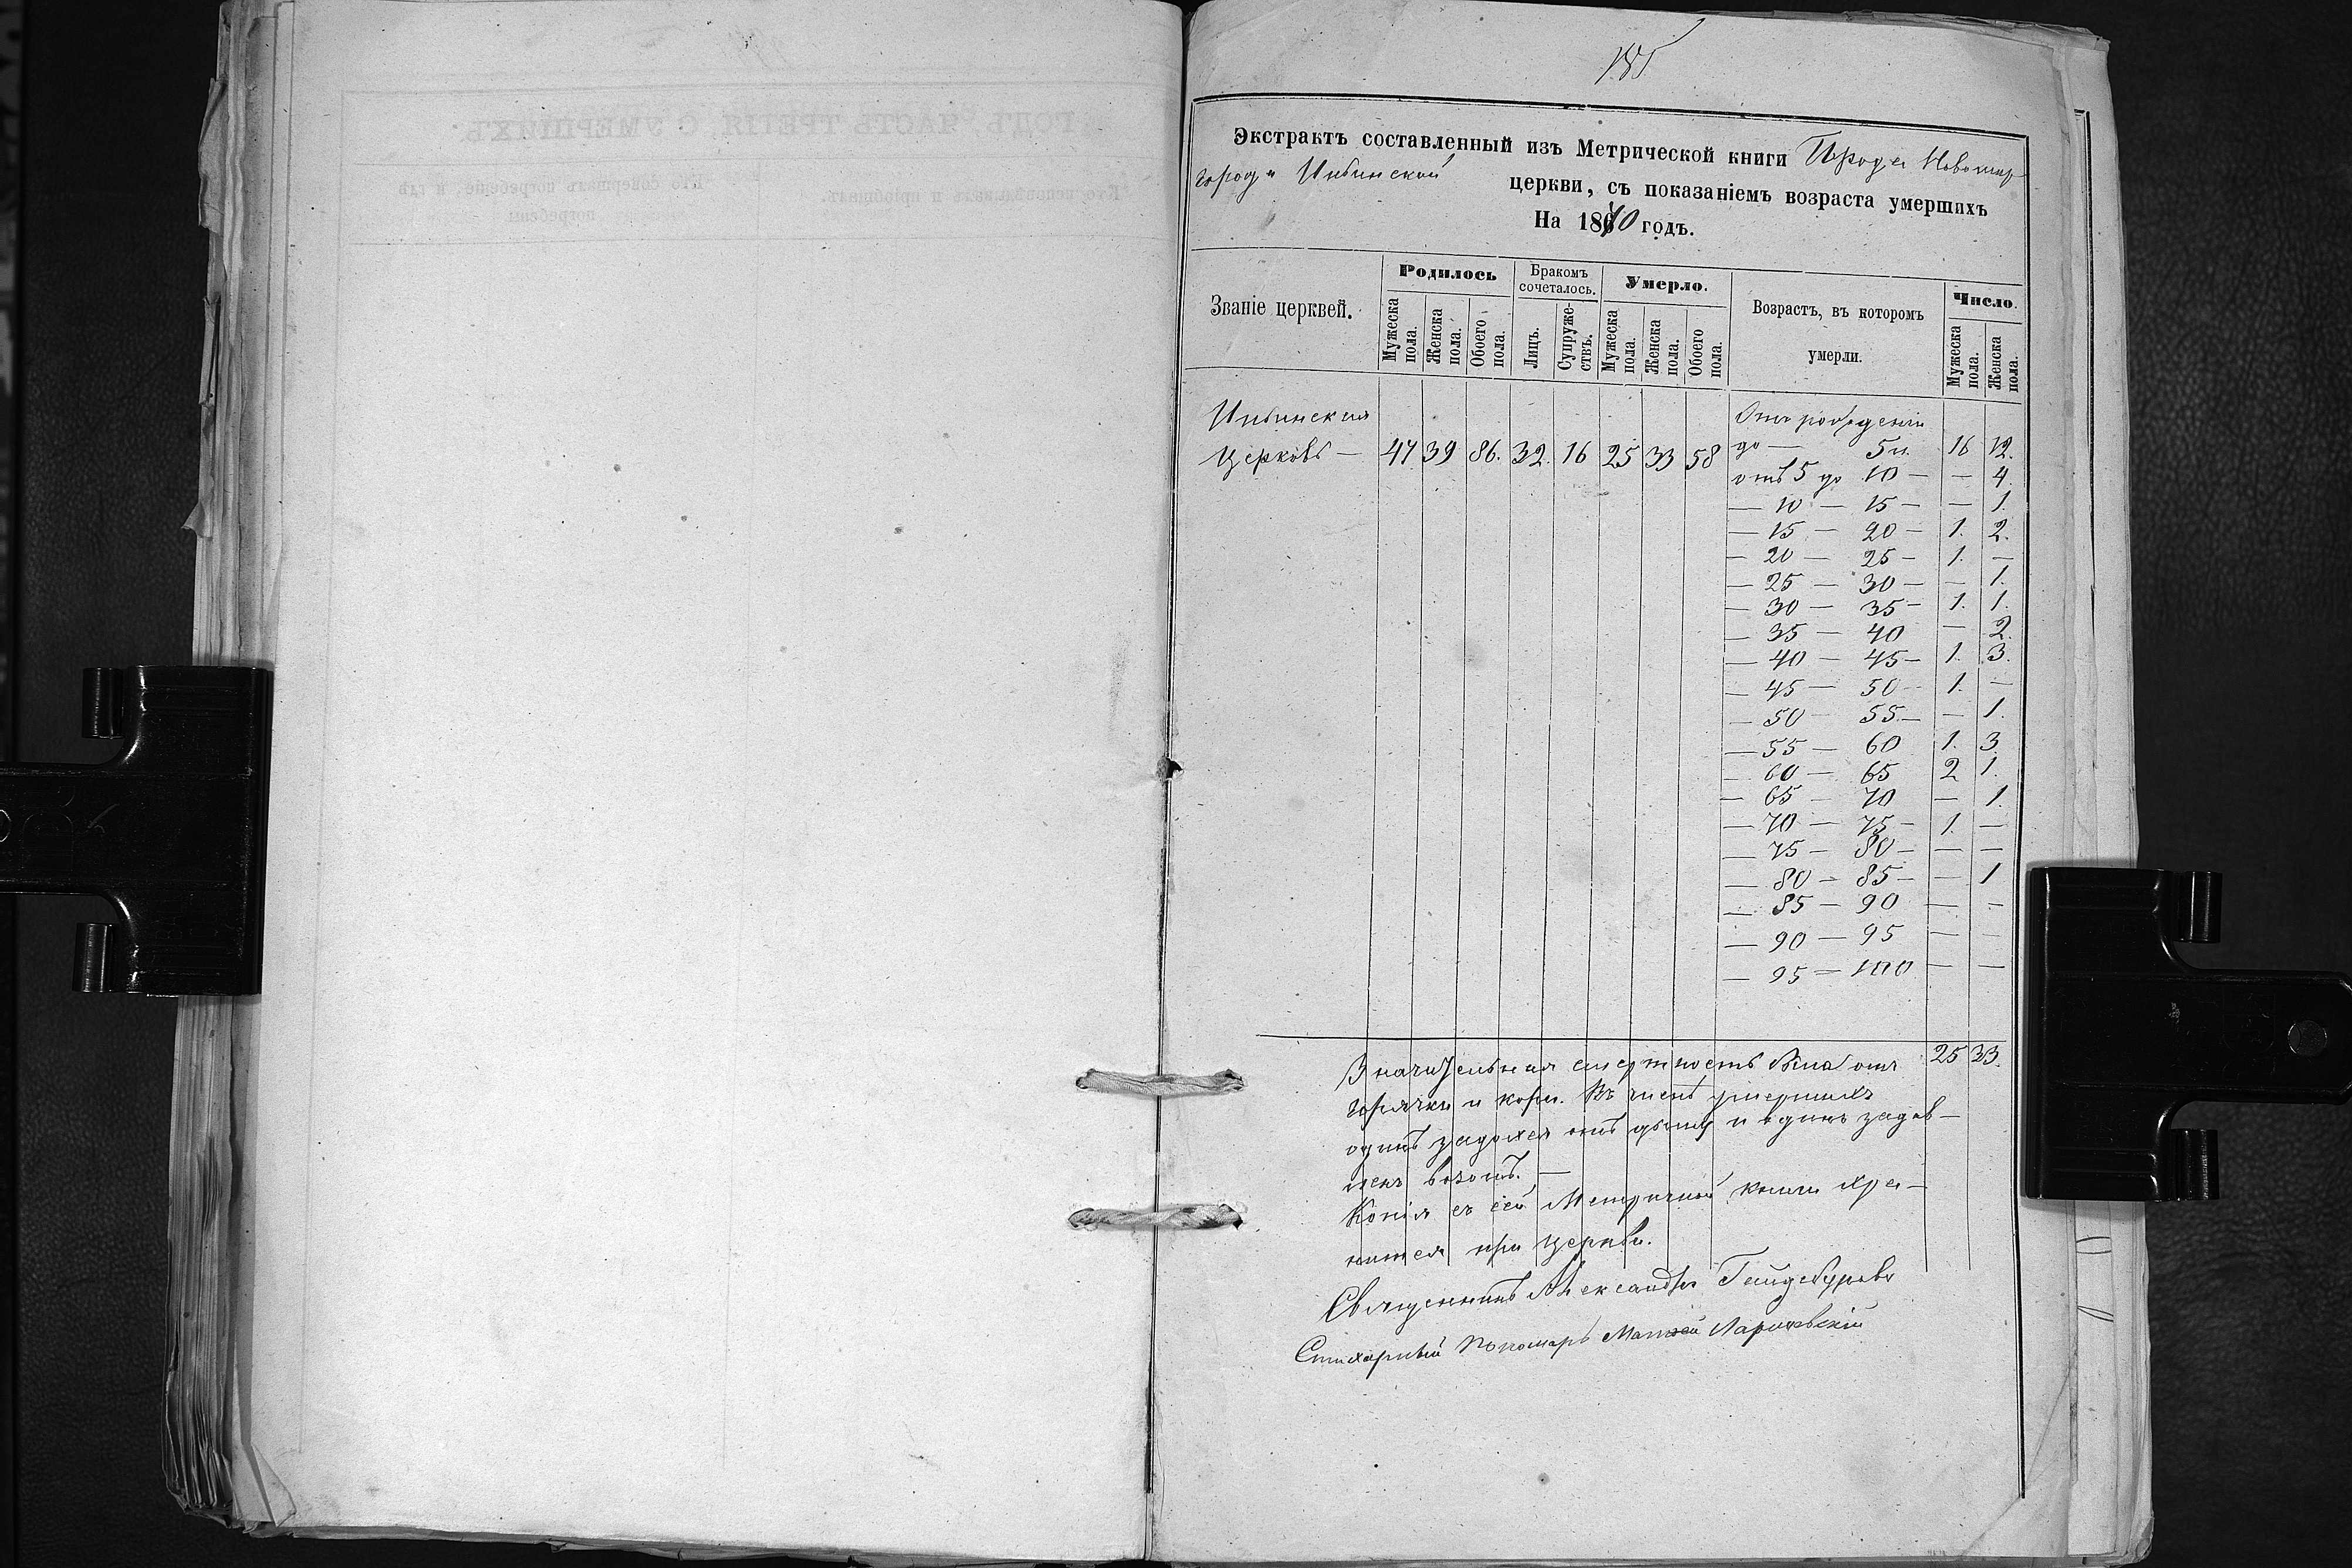 185
Экстрактъ составленный изъ Метрической книги Города Новомир-
города Ильинской церкви, съ показаніемъ возраста умершихъ
На 1870 годъ.
Званіе церквей. Родилось Бракомъ сочеталось. Умерло. Возрастъ, въ которомъ умерли. Число.
Мужеска пола. Женска пола. Обоего пола. Лицъ. Супружествъ. Мужеска пола. Женска пола. Обоего пола. Мужеска пола. Женска пола.
Ильинская Отъ рожденія
Церковь — 47 39 86. 32. 16 25 33 58 до — 5и 16 12.
отъ 5 до 10 — — 4.
— 10 — 15 — — 1.
— 15 — 20 — 1. 2.
— 20 — 25 — 1. —
— 25 — 30 — — 1.
— 30 — 35 — 1. 1.
— 35 — 40 — 2.
— 40 — 45 — 1. 3.
— 45 — 50 — 1. —
— 50 — 55 — — 1.
— 55 — 60 1. 3
— 60 — 65 2 1.
— 65 — 70 — 1.
— 70 — 75 — 1. —
— 75 — 80 — — —
— 80 — 85 — — 1
— 85 — 90 — —
— 90 — 95 — —
— 95 — 100 — —
25 33.
Значительная смертность была отъ
горячки и кори. Въ числѣ умершихъ
одинъ задохся отъ дыму и одинъ задав-
ленъ возомъ. —
Копія съ сей Метричной книги хра-
нится при церкви.
Священникъ Александръ Гайдебуровъ
Стихарный Пономарь Матѳей